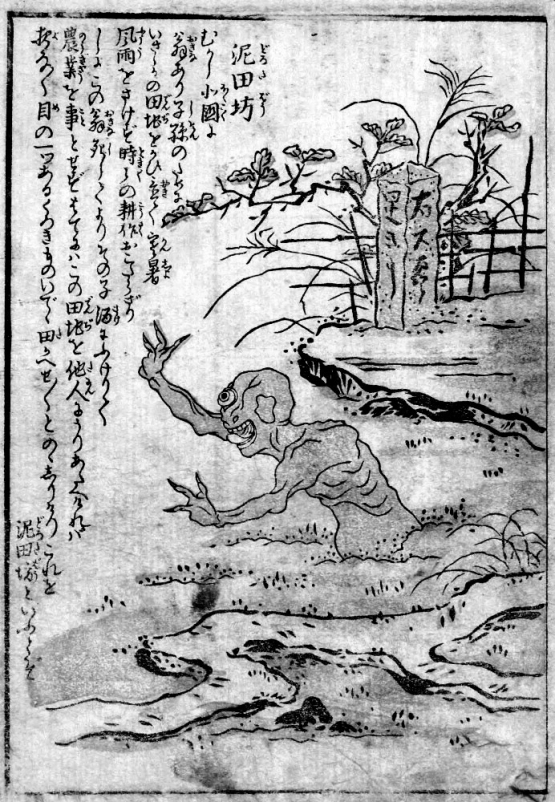 泥田坊
むかし北國に
翁あり子孫のために
いさゝかの田地をかひ置て寒暑
風雨をさけず時〻の耕作おこたらざり
しにこの翁死してよりその子酒にふけりて
農業を事とせずはてにはこの田地を他人にうりあたへければ
夜な〳〵目の一つあるくろきものいでゝ田かへせ〳〵とのゝしりけりこれを
泥田坊といふとぞ